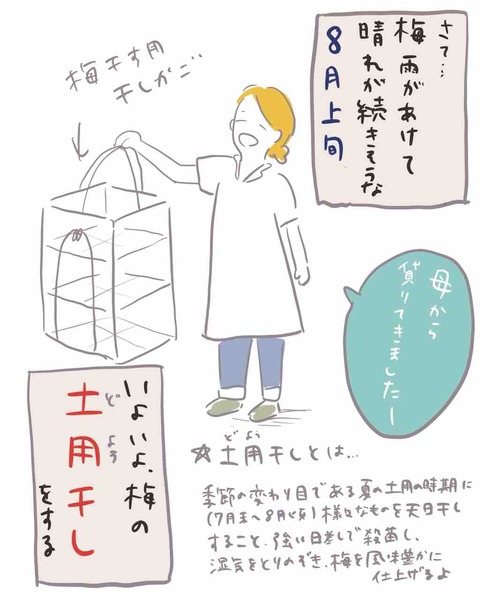 さて…
梅雨があけて
晴れが続きそうな
8月上旬
梅干す用
干しかご
母から
借りてきましたー
いよいよ、梅の
土用干し
どよう
をする
☆土用干しとは…
どよう
季節の変わり目である夏の土用の時期に
(7月末〜8月頃)様々なものを天日干し
すること。強い日差しで殺菌し、
湿気をとりのぞき、梅を風味豊かに
仕上げるよ